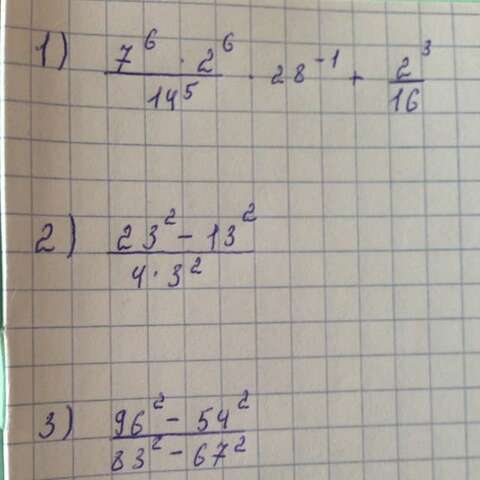 1) \frac{7^6 \cdot 2^6}{14^5} \cdot 28^{-1} + \frac{2^3}{16}
2) \frac{23^2 - 13^2}{4 \cdot 3^2}
3) \frac{96^2 - 54^2}{83^2 - 67^2}